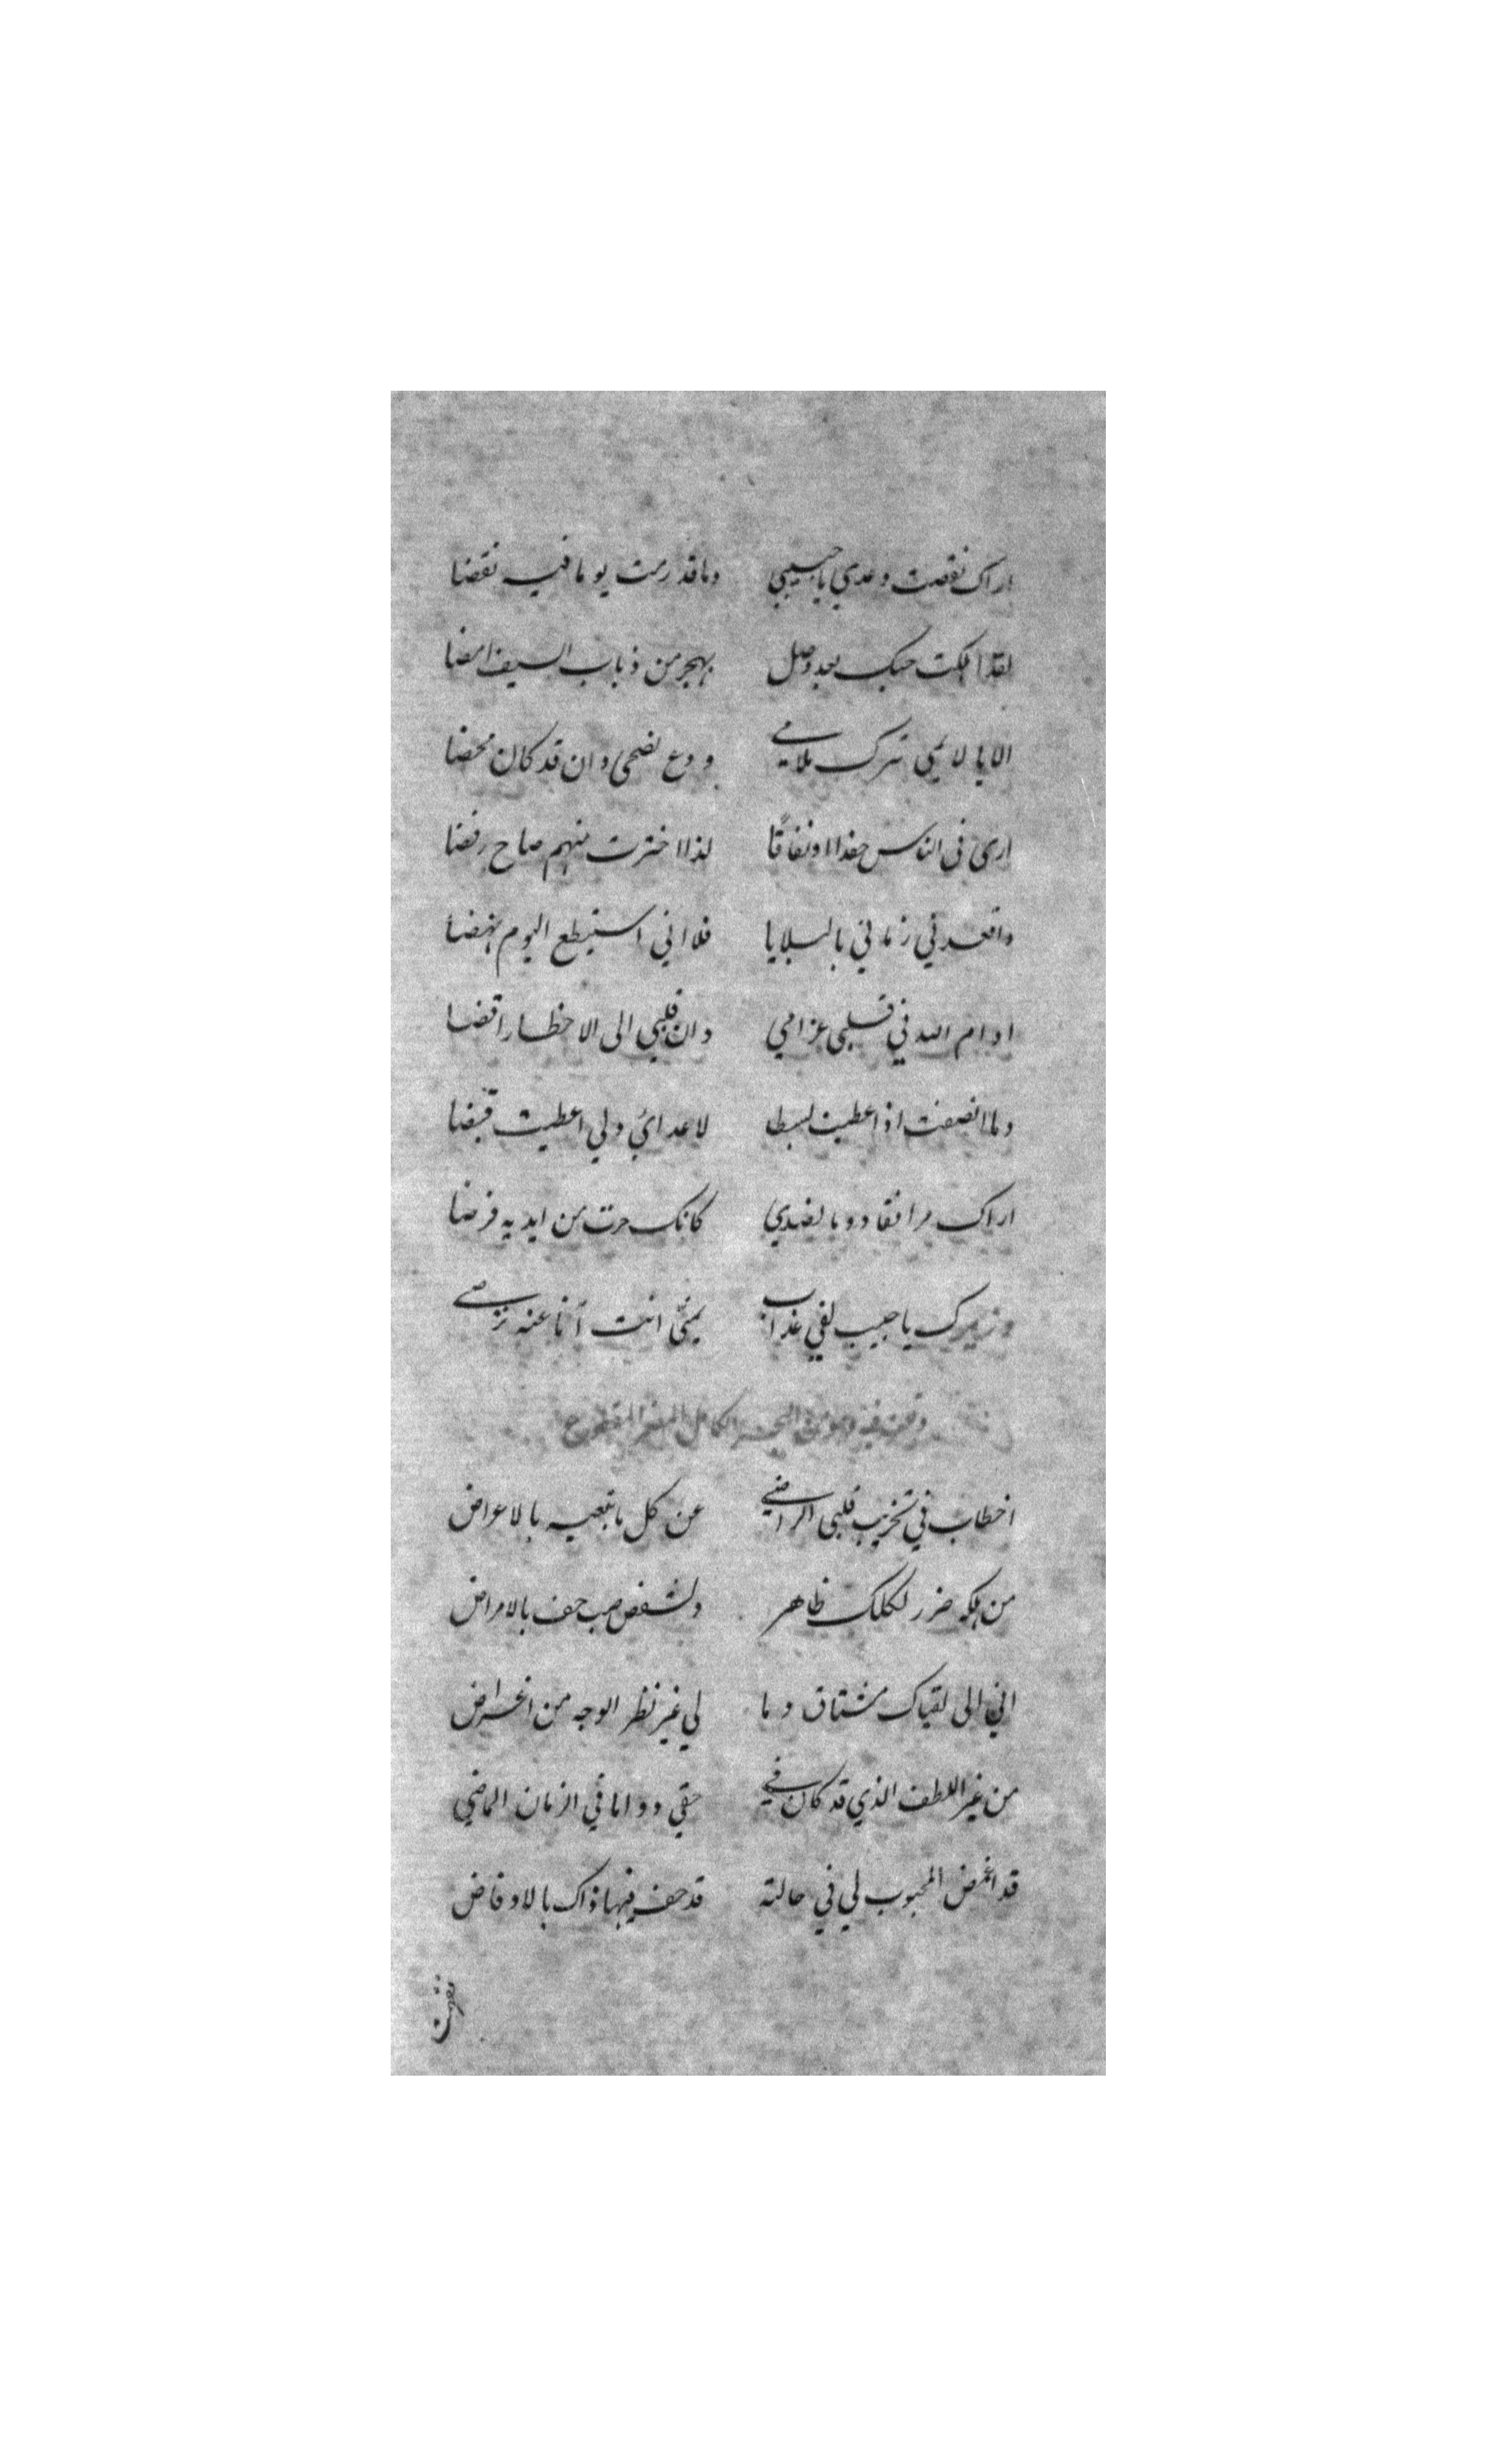 اراك نقضت وعدي يا حبيبي وما قد رمت يوما فيه نقضا
لقد اهلكت حبك بعد وصل بهجر من ذباب السيف امضا
الا يا لايمي اترك ملامي و دع نصحي وان قد كان محضا
ارى في الناس حقدا او نفاقًا لذا اخترت منهم صاح رفضا
واقعدني زماني بالبلايا فلا اني استيطع اليوم نهضا
ادام الله في قلبي غرامي وان قلبي الى الاخطار اقضا
وما انصفت اذ اعطيت بسطا لاعدائي ولي اعطيت قبضا
اراك مرافقا دوما لضدي كانك حزت من ايديه فرضا
وغيرك يا حبيب لفي عذاب بمن انت انا عنه ترضى
وقلت فيه وهو من البحر الكامل المضمر المقطوع
اخطات في تخريب قلبي الراضي عن كل ما تبغيه بالاعراض
من هلكه ضرر لكلك ظاهر ولشخص صب حف بالامراض
اني الى لقياك مشتاق وما لي غير نظر الوجه من اغراض
من غير اللطف الذي قد كان في حقي دواما في الزمان الماضي
قد اغمض المحبوب لي في حالة قد حف فيها ذاك بالاوفاض